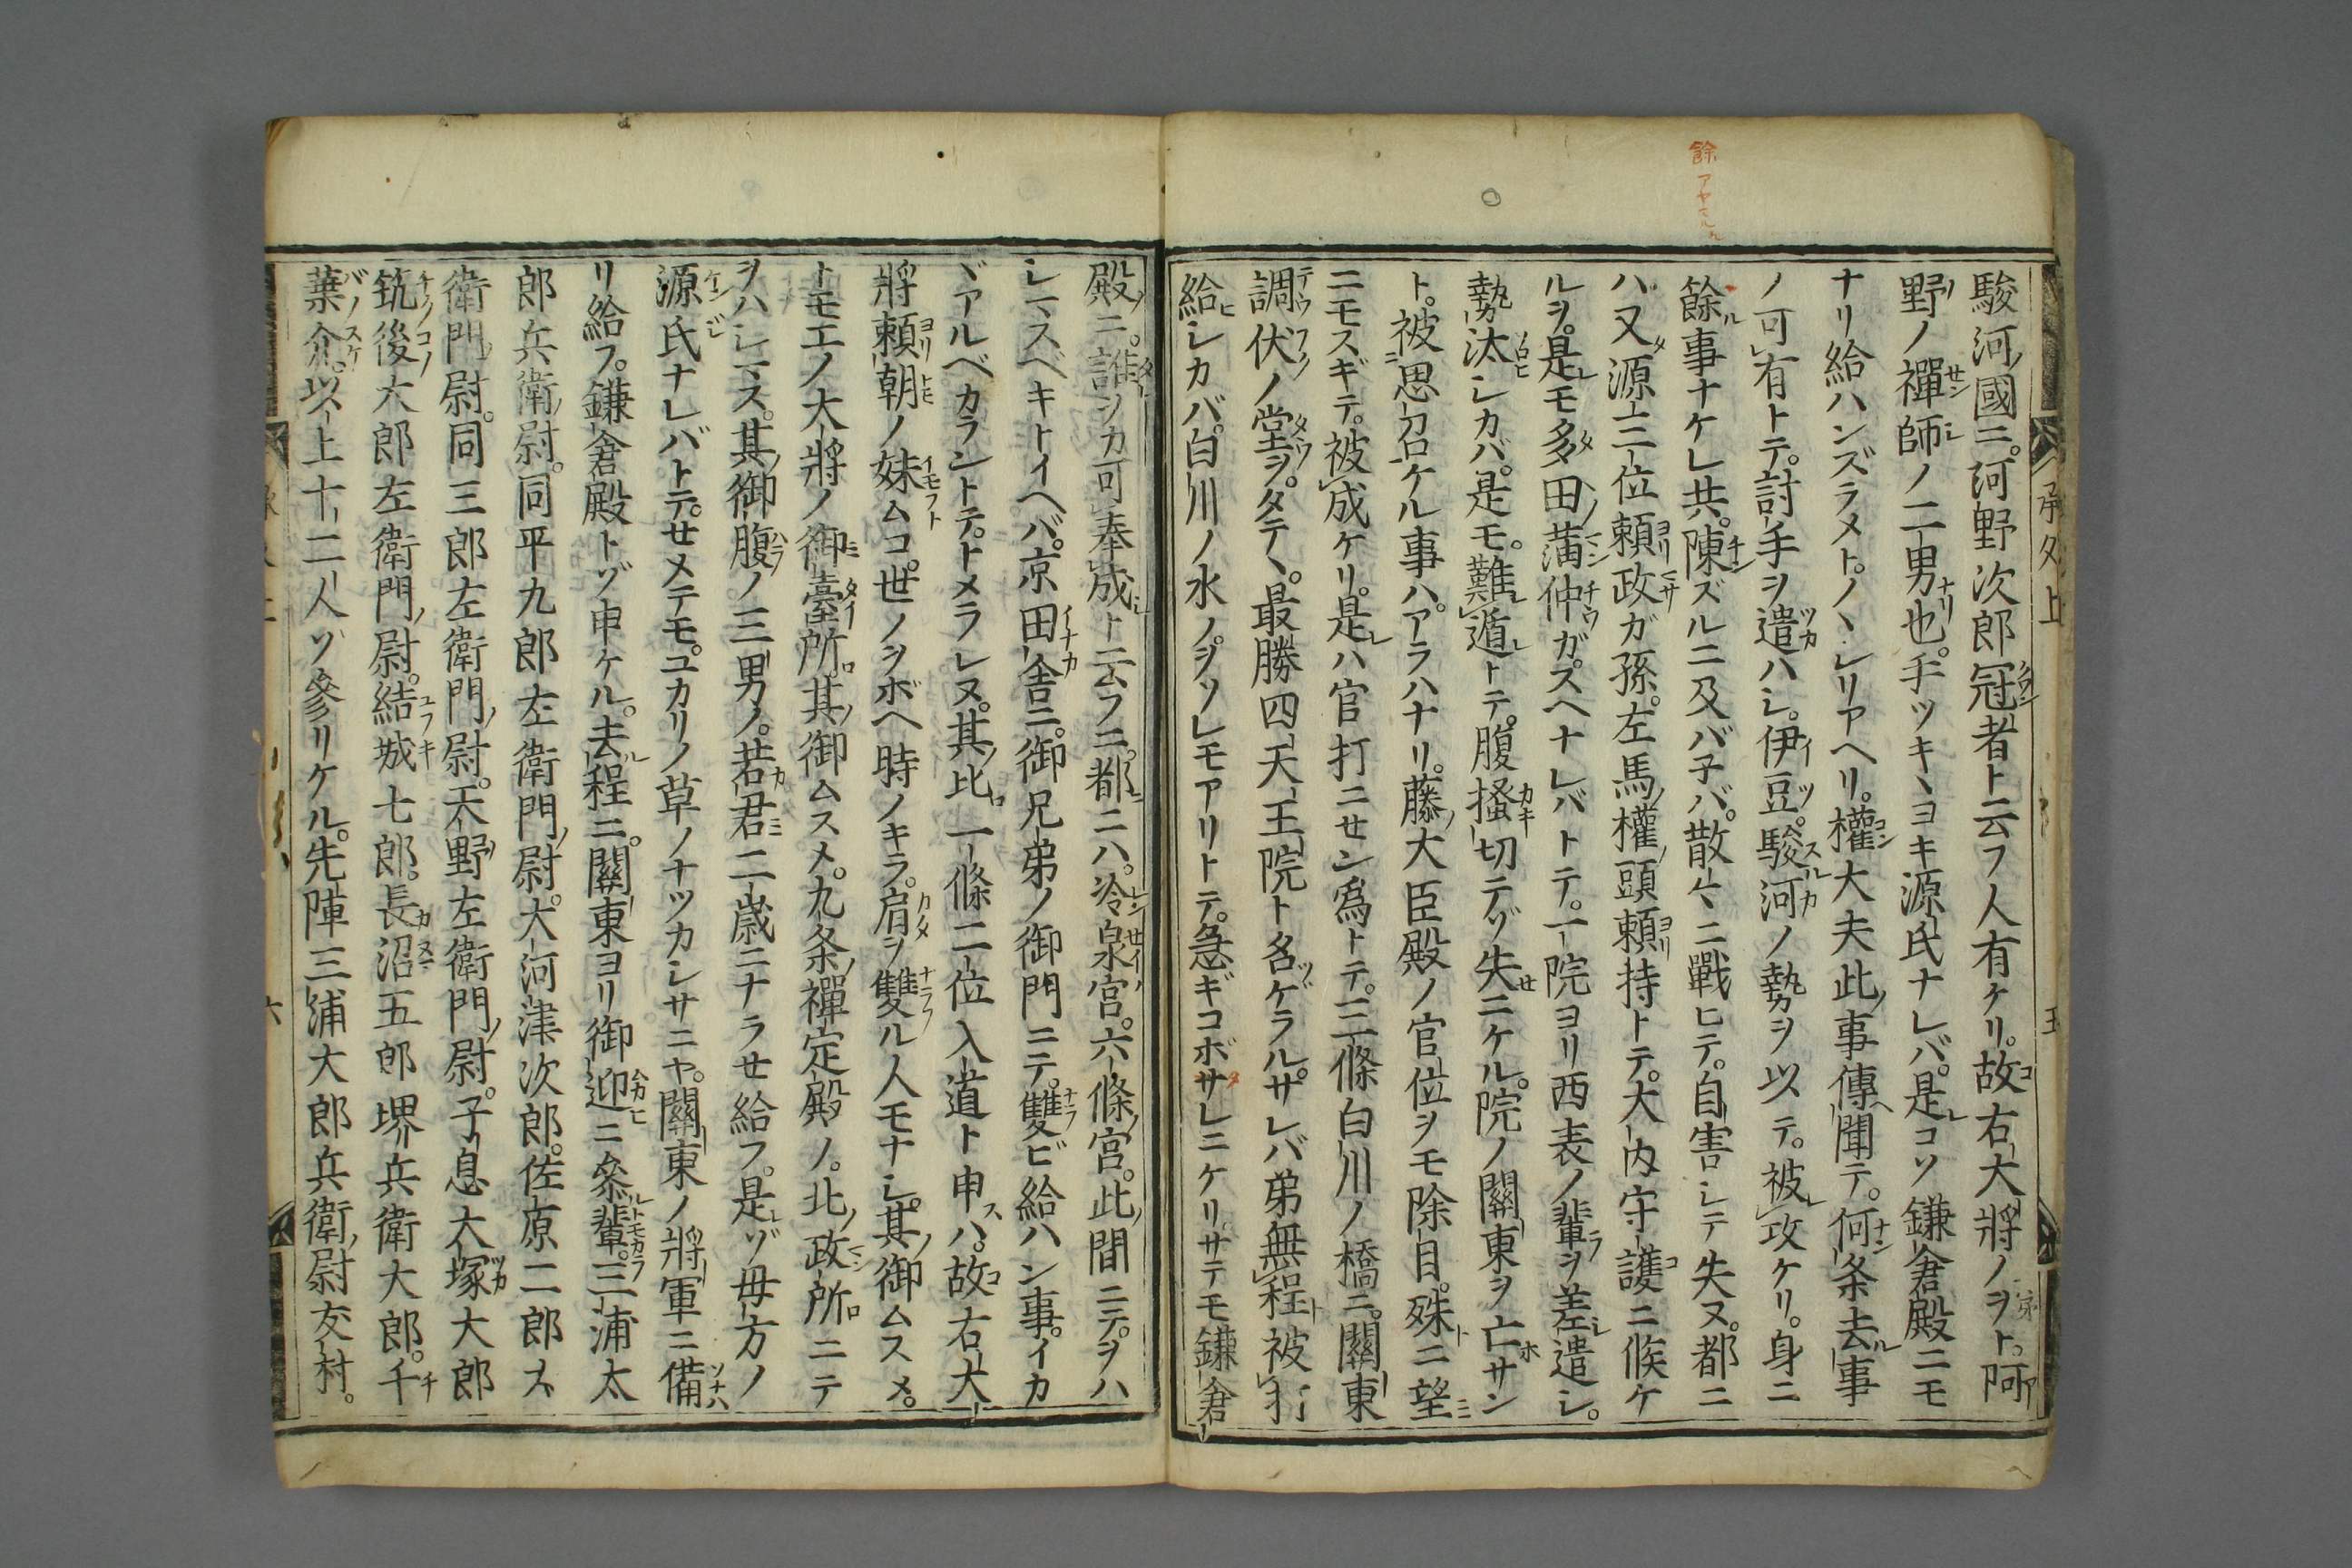 餘アヤマル
承久上
五
駿河ノ國ニ。河野次郎冠者ト云フ人有ケリ。故右大將ノヲト。阿
野ノ禪師ノ二男也。手ツキヽヨキ源氏ナレバ。是コソ鎌倉殿ニモ
ナリ給ハンズラメト。ノヽシリアヘリ。權大夫此ノ事傳聞テ。何条去ル事
ノ可有トテ。討手ヲ遣ハシ。伊豆。駿河ノ勢ヲ以テ。被攻ケリ。身ニ
餘ル事ナケレ共。陳ズルニ及バ子バ。散々ニ戰ヒテ。自害シテ失ヌ。都ニ
ハ又源三位頼政ガ孫。左馬ノ權ノ頭頼持トテ。大内守護ニ候ケ
ルヲ。是モ多田ノ満仲ガ。スヘナレバトテ。一院ヨリ西表ノ輩ヲ差遣シ。
勢汰シカバ。是モ。難遁トテ。腹搔切テゾ失ニケル。院ノ關東ヲ亡サン
ト。被思召ケル事ハ。アラハナリ。藤大臣殿ノ官位ヲモ除目。殊ニ望
ニモスギテ。被成ケリ。是ハ官打ニセン爲トテ。三條白川ノ橋ニ。關東
調伏ノ堂ヲ。タテヽ。最勝四天王院ト名ケラル。サレバ弟無程被打
給ヒシカバ。白川ノ水ノ。ヲソレモアリトテ。急ギコボサレニケリ。サテモ鎌倉
殿ニ。誰ヲカ可奉成ト云フニ。都ニハ。冷泉宮。六條ノ宮。此ノ間ニテ。ヲハ
シマスベキトイヘバ。京田舎ニ。御兄弟ノ御門ニテ。雙ビ給ハン事。イカ
ヾアルベカラントテ。トメラレヌ。其ノ比一條二位入道ト申スハ。故右大
將頼朝ノ妹ムコ。世ノヲボヘ時ノキラ。肩ヲ雙ル人モナシ。其ノ御ムスメ。
トモエノ大將ノ御臺所。其ノ御ムスメ。九条ノ禪定殿ノ。北ノ政所ニテ
ヲハシマス。其ノ御腹ノ三男ノ。若君二歳ニナラセ給フ。是ゾ母方ノ
源氏ナレバトテ。セメテモ。ユカリノ草ノナツカシサニヤ。關東ノ將軍ニ備
リ給フ。鎌倉殿トゾ申ケル。去ル程ニ。關東ヨリ御迎ニ參ル輩。三浦太
郎兵衛ノ尉。同平九郎左衛門ノ尉。大河津次郎。佐原二郎ス
衛門ノ尉。同三郎左衛門ノ尉。天野ノ左衛門ノ尉。子息大塚大郎
筑後六郎左衛門ノ尉。結城七郎。長沼五郎堺兵衛大郎。千
葉介。以上十二人ソ參リケル。先陣三浦大郎兵衛ノ尉友村。
六